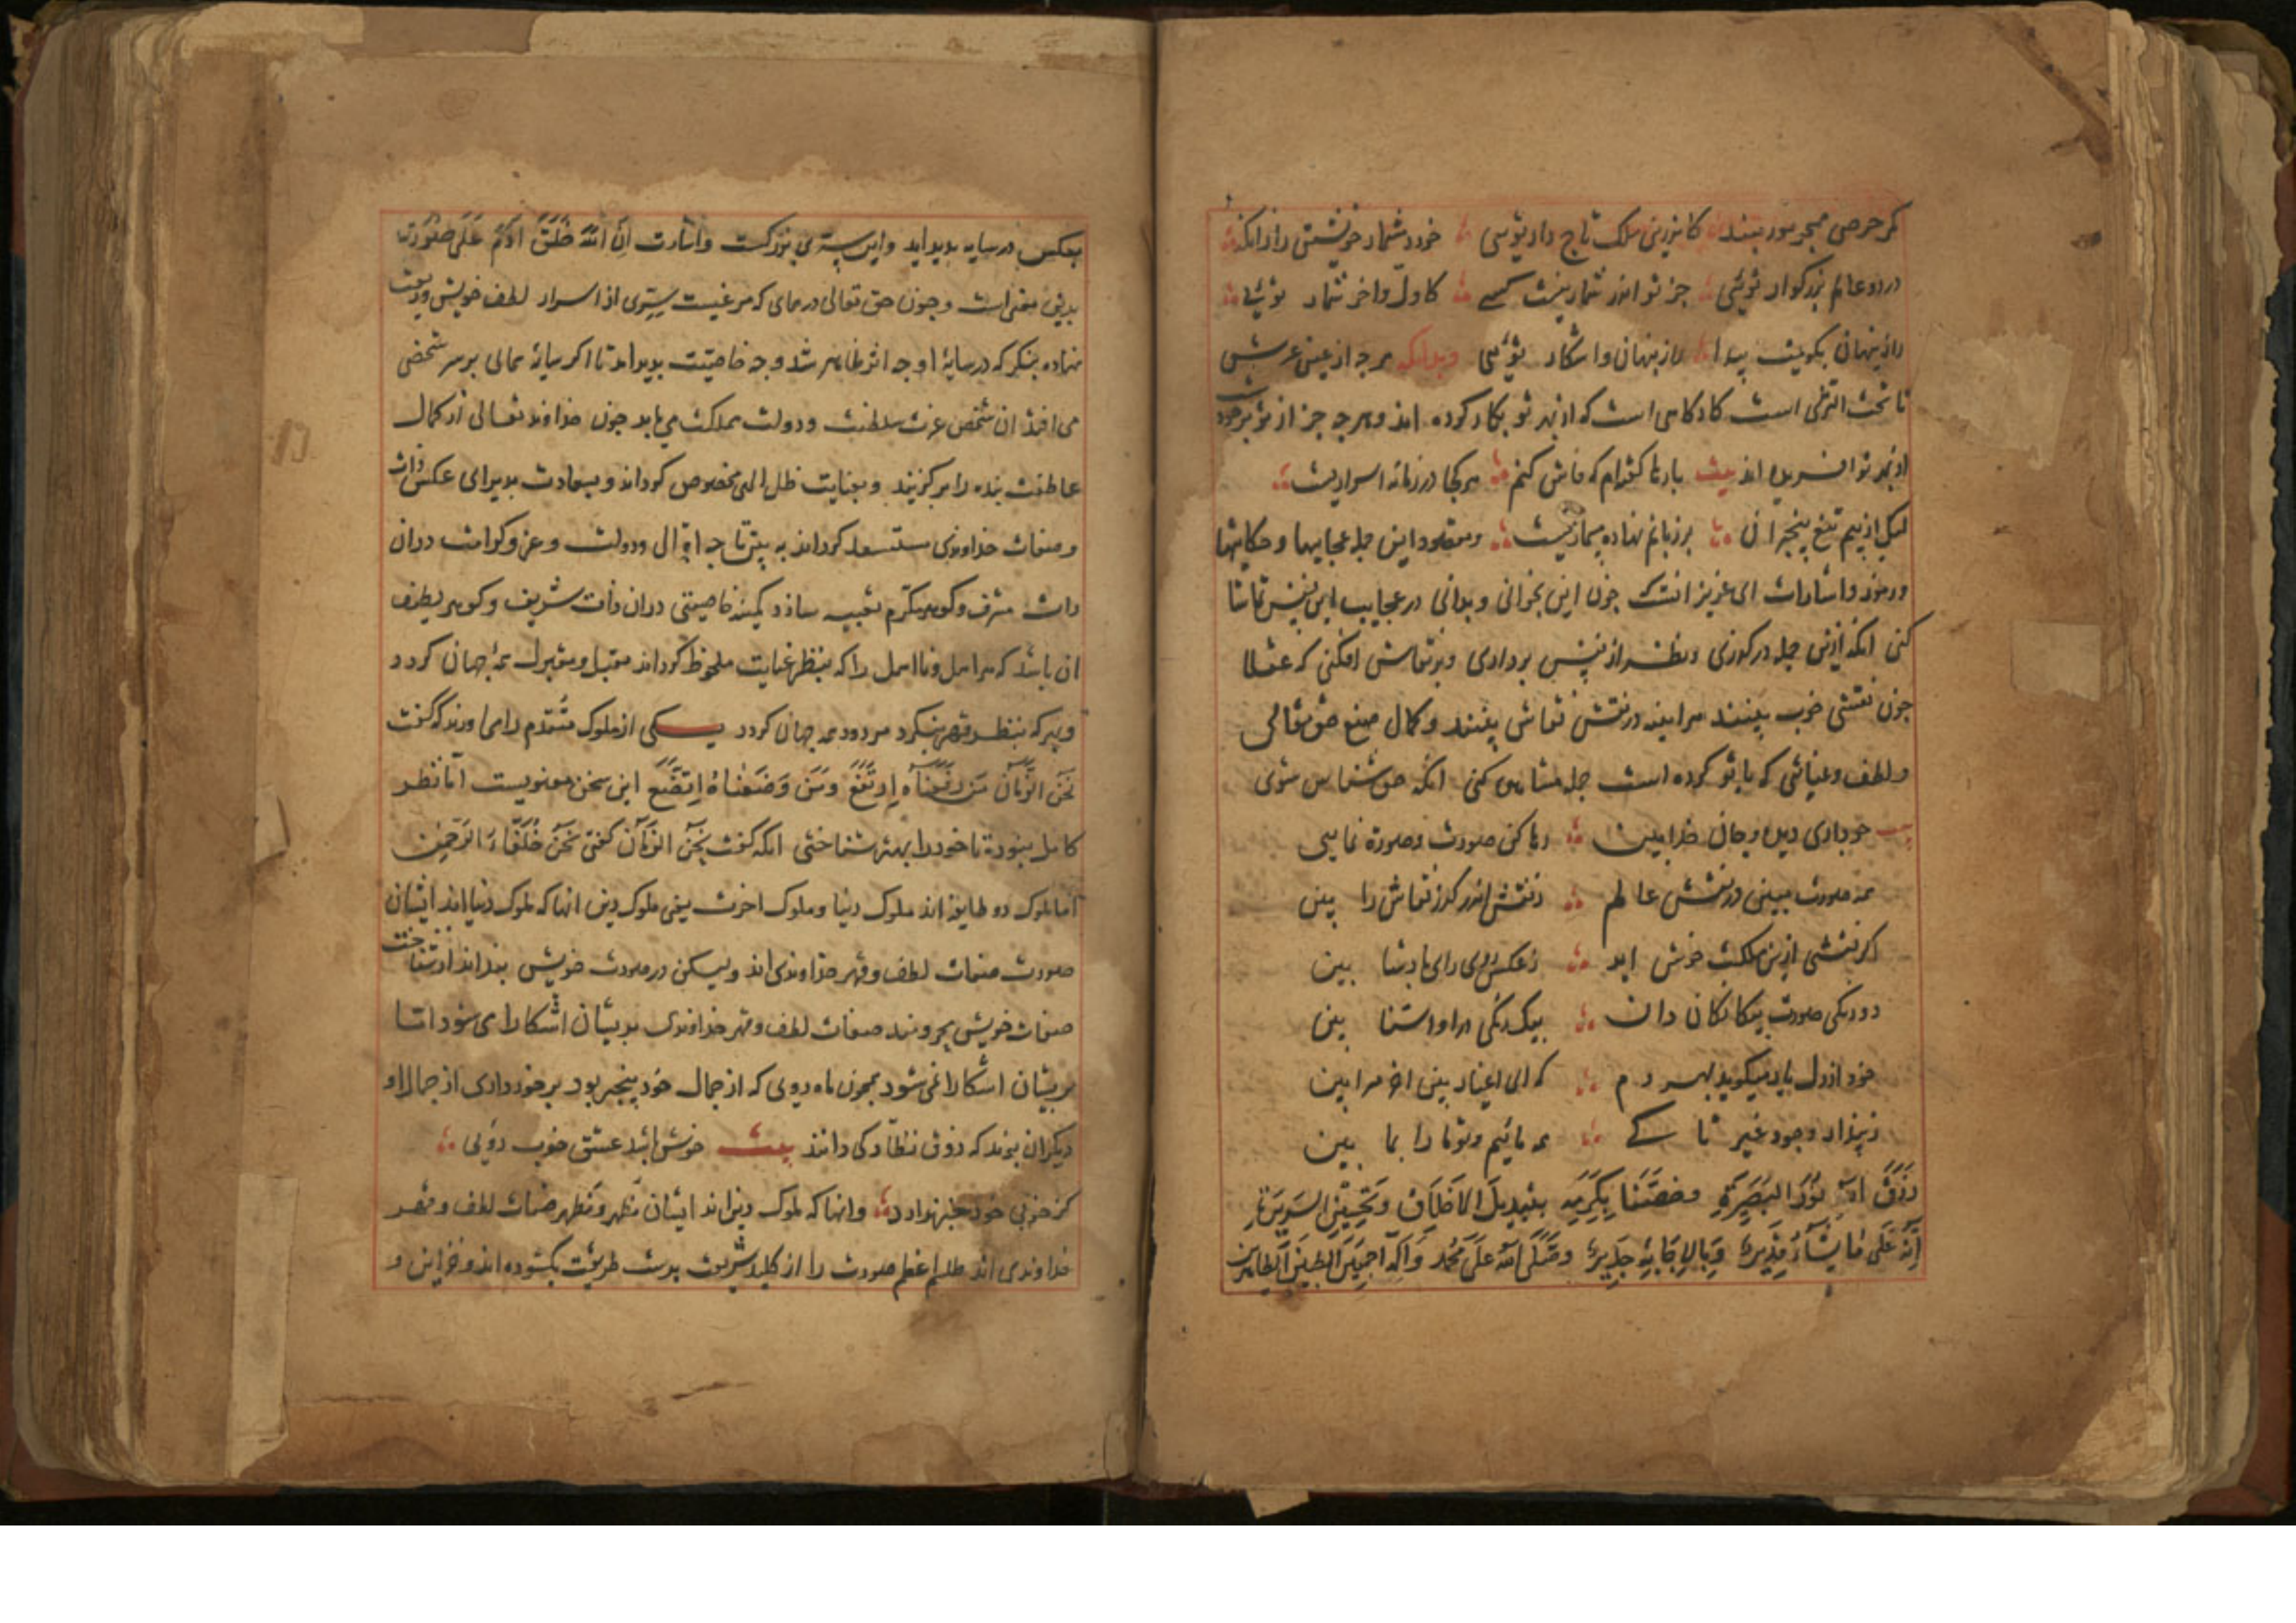 کمر حرص همچو مور مبند کاندرین ملک تاج دار توئی خرد مشمار خویشتن را زانکه
در دو عالم بزرکوار توئی جز تو اندر شمار نیست کسے کاول و اخر شمار توئی
راز پنهان بکویمت پیدا راز پنهان و اشکار توئی وبدانکه هرچه از عین عرش
تا تحت الثری است کارکاهی است که از بهر تو بکار کرده اند و هرچه جز از تو بر وجود
از بهر تو افریده اند بیت بارها کفته ام که فاش کنم هرکجا در زمانه اسراریست
لیک از بیم تیغ بیخبران بر زبانم نهاده مسماریست ومقصود این جمله عجایبها و حکایتها
و رموز و اشارات ای عزیز انست که چون این بخوانی و بدانی در عجایب این نقش تماشا
کنی انکه ازین جمله درکذری و نظر از نقش برداری و بر نقاش افکنی که عقلا
چون نقشی خوب بینند هراینه در نقش نقاش بینند و کمال صنع حق تعالی
و لطف و عنایتی که با تو کرده است جمله مشاهده کنی انکه حق شناس شوی
بیت چو داری دیده و جان خدابین رها کن صورت و صورة نمابین
همه صورت مبینی در نقش عالم ز نقش اندر کذر نقاش را بین
اکر نقشی ازین ملکت خوش اید ز عکس روی رای پادشا بین
دو رنکی صورت بیکانکان دان بیک رنکی مر او را اشنا بین
خود از دل یار میکوید بهر دم که ای اغیار بینی اخر مرا بین
ندارد وجود غیر ما کے همه مائیم و تو ما را بما بین
رزقنا الله نور البصیرة وخصنا بکرمه بتبدیل الاخلاق وتحقیق السریرة
انه علی ما یشاء قدیر وبالاجابة جدیر وصلی الله علی محمد واله اجمعین الطیبین الطاهرین
بعکس در سایه پدید اید و این سرّی بزرکست و اشارت ان الله خلق ادم علی صورته
بدین معنی است و چون حق تعالی در همای که مرغیست سرّی از اسرار لطف خویش ودیعت
نهاده بنکر که در سایۀ او چه اثر ظاهر شد و چه خاصیت پدید امد تا اکر سایۀ همای بر سر شخصی
می افتد ان شخص عزت سلطنت و دولت مملکت می یابد چون خداوند تعالی از کمال
عاطفت بنده را برکزیند و بعنایت ظل الهی مخصوص کرداند و بسعادت پذیرای عکس ذات
و صفات خداوندی مستسعد کرداند ببین تا چه اقبال و دولت و عز و کرامت دران
ذات مشرف و کوهر مکرم تعبیه سازد کمینه خاصیتی دران ذات شریف و کوهر لطیف
ان باشد که هر اهل و نااهل را که بنظر عنایت ملحوظ کرداند مقبل و مقبول همه جهان کردد
وبهرکه بنظر قهر بنکرد مردود همه جهان کردد یکی از ملوک متقدم را می اورند که کفت
نحن الزمان من رفعناه ارتفع ومن وضعناه اتضع این سخن معنویست اما نظر
کامل نبوده تا خود را بهتر شناختی انکه کفت نحن الزمان کفتی نحن خلفاء الرحمن
اما ملوک دو طایفه اند ملوک دنیا و ملوک اخرت یعنی ملوک دین انها که ملوک دنیا اند ایشان
صورت صفات لطف و قهر خداوندی اند ولیکن در صورت خویش بند اند از شناخت
صفات خویش محرومند صفات لطف و قهر خداوندی بدیشان اشکارا می شود اما
بریشان اشکارا نمی شود همچون ماه روی که از جمال خود بیخبر بود برخورداری از جمال او
دیکران بزند که ذوق نظارکی دانند بیت خوش باشد عشق خوب روئی
کز خوبی خود خبر ندارد و انها که ملوک دین اند ایشان مظهر و مظهر صفات لطف و قهر
خداوندی اند طلسم اعظم صورت را از کلید شریعت بدست طریقت بکشوده اند و خزاین و